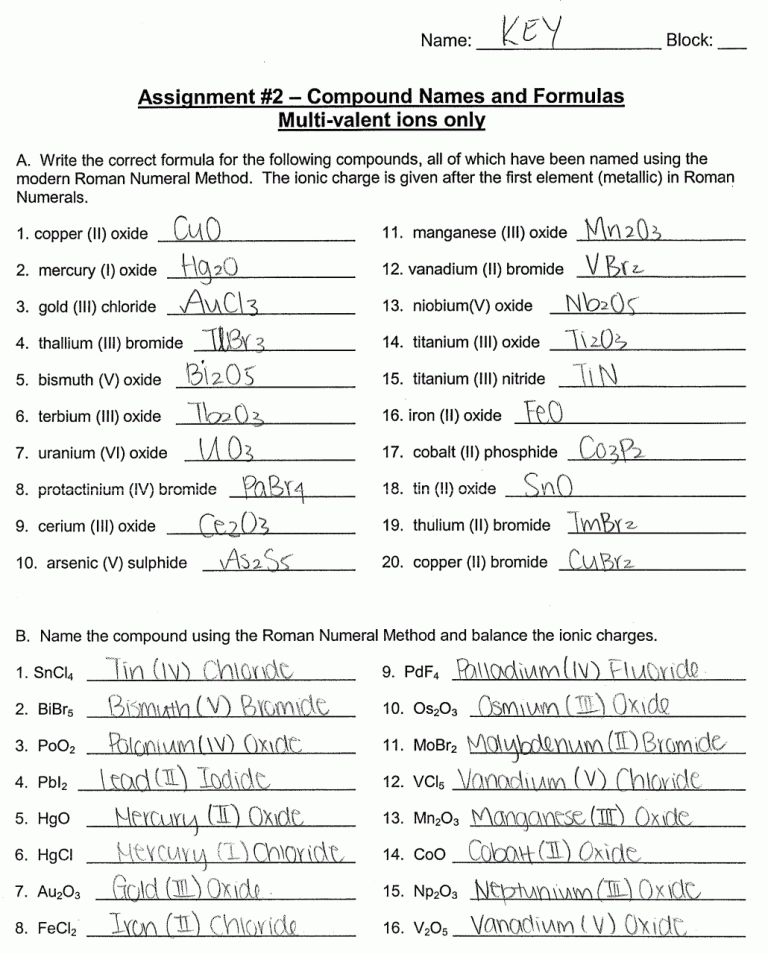 Name: KEY Block: ___
Assignment #2 – Compound Names and Formulas
Multi-valent ions only
A. Write the correct formula for the following compounds, all of which have been named using the
modern Roman Numeral Method. The ionic charge is given after the first element (metallic) in Roman
Numerals.
1. copper (II) oxide CuO
2. mercury (I) oxide Hg₂O
3. gold (III) chloride AuCl₃
4. thallium (III) bromide TlBr₃
5. bismuth (V) oxide Bi₂O₅
6. terbium (III) oxide Tb₂O₃
7. uranium (VI) oxide UO₃
8. protactinium (IV) bromide PaBr₄
9. cerium (III) oxide Ce₂O₃
10. arsenic (V) sulphide As₂S₅
11. manganese (III) oxide Mn₂O₃
12. vanadium (II) bromide VBr₂
13. niobium(V) oxide Nb₂O₅
14. titanium (III) oxide Ti₂O₃
15. titanium (III) nitride TiN
16. iron (II) oxide FeO
17. cobalt (II) phosphide Co₃P₂
18. tin (II) oxide SnO
19. thulium (II) bromide TmBr₂
20. copper (II) bromide CuBr₂
B. Name the compound using the Roman Numeral Method and balance the ionic charges.
1. SnCl₄ Tin (IV) Chloride
2. BiBr₅ Bismuth (V) Bromide
3. PoO₂ Polonium (IV) Oxide
4. PbI₂ Lead (II) Iodide
5. HgO Mercury (II) Oxide
6. HgCl Mercury (I) Chloride
7. Au₂O₃ Gold (III) Oxide
8. FeCl₂ Iron (II) Chloride
9. PdF₄ Palladium (IV) Fluoride
10. Os₂O₃ Osmium (III) Oxide
11. MoBr₂ Molybdenum (II) Bromide
12. VCl₅ Vanadium (V) Chloride
13. Mn₂O₃ Manganese (III) Oxide
14. CoO Cobalt (II) Oxide
15. Np₂O₃ Neptunium (III) Oxide
16. V₂O₅ Vanadium (V) Oxide